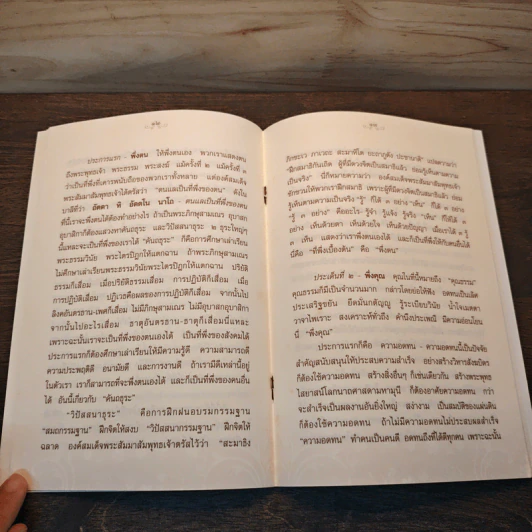 ประการแรก - พึ่งตน ให้พึ่งตนเอง พวกเราแสดงตน
ถึงพระพุทธเจ้า พระธรรม พระสงฆ์ แม้ครั้งที่ ๒ แม้ครั้งที่ ๓
ว่าเป็นที่พึ่งที่เคารพนับถือของพวกเราทั้งหลาย แต่องค์สมเด็จ
พระสัมมาสัมพุทธเจ้าได้ตรัสว่า "ตนแลเป็นที่พึ่งของตน" ดังใน
บาลีที่ว่า อัตตา หิ อัตตโน นาโถ - ตนแลเป็นที่พึ่งของตน
ที่นี้เราจะพึ่งตนได้ต้องทำอย่างไร ถ้าเป็นพระภิกษุสามเณร อุบาสก
อุบาสิกาก็ต้องแสวงหาคันถธุระ และวิปัสสนาธุระ ๒ ธุระใหญ่ๆ
นี้แหละจะเป็นที่พึ่งของเราได้ "คันถธุระ" ก็คือการศึกษาเล่าเรียน
พระธรรมวินัย พระไตรปิฎกให้แตกฉาน ถ้าพระภิกษุสามเณร
ไม่ศึกษาเล่าเรียนพระธรรมวินัยพระไตรปิฎกให้แตกฉาน ปริยัติ
ธรรมก็เสื่อม เมื่อปริยัติธรรมเสื่อม การปฏิบัติก็เสื่อม เมื่อ
การปฏิบัติเสื่อม ปฏิเวธคือผลของการปฏิบัติก็เสื่อม จากนั้นไป
ลิงคอันตรธาน-เพศก็เสื่อม ไม่มีภิกษุสามเณร ไม่มีอุบาสกอุบาสิกา
จากนั้นไปอะไรเสื่อม ธาตุอันตรธาน-ธาตุก็เสื่อมนี่แหละ
เพราะฉะนั้นเราจะเป็นที่พึ่งของตนเองได้ เป็นที่พึ่งของสังคมได้
ประการแรกก็ต้องศึกษาเล่าเรียนให้มีความรู้ดี ความสามารถดี
ความประพฤติดี อนามัยดี และการงานดี ถ้าเรามีดีเหล่านี้อยู่
ในตัวเรา เราก็สามารถที่จะพึ่งตนเองได้ และก็เป็นที่พึ่งของคนอื่น
ได้ อันนี้เกี่ยวกับ "คันถธุระ"
"วิปัสสนาธุระ" คือการฝึกฝนอบรมกรรมฐาน
"สมถกรรมฐาน" ฝึกจิตให้สงบ "วิปัสสนากรรมฐาน" ฝึกจิตให้
ฉลาด องค์สมเด็จพระสัมมาสัมพุทธเจ้าตรัสไว้ว่า "สะมาธิง
ภิกขะเว ภาเวถะ สะมาหิโต ยะถาภูตัง ปะชานาติ" แปลความว่า
"ฝึกสมาธิกันเถิด ผู้ที่มีดวงจิตเป็นสมาธิแล้ว ย่อมรู้เห็นตามความ
เป็นจริง" นี่ก็หมายความว่า องค์สมเด็จพระสัมมาสัมพุทธเจ้า
ชักชวนให้พวกเราฝึกสมาธิ เพราะผู้ที่มีดวงจิตเป็นสมาธิแล้ว ย่อม
รู้เห็นตามความเป็นจริง "รู้" ก็ได้ ๓ อย่าง "เห็น" ก็ได้ ๓ อย่าง
"รู้ ๓ อย่าง" คืออะไร- รู้จำ รู้แจ้ง รู้จริง "เห็น" ก็ได้ ๓
อย่าง เห็นด้วยตา เห็นด้วยใจ เห็นด้วยปัญญา เมื่อเราได้ ๓ รู้
๓ เห็น แสดงว่าเราพึ่งตนเองได้ และก็เป็นที่พึ่งให้กับคนอื่นได้
นี่คือ "ที่พึ่งเบื้องต้น" คือ "พึ่งตน"
ประเด็นที่ ๒ - พึ่งคุณ คุณในที่นี้หมายถึง "คุณธรรม"
คุณธรรมก็มีเป็นจำนวนมาก กล่าวโดยย่อให้ฟัง อดทนเป็นเลิศ
ประเสริฐขยัน ยึดมั่นกตัญญู รู้ระเบียบวินัย น้ำใจเมตตา
วาจาไพเราะ สงเคราะห์ทั่วถึง คำนึงประเพณี มีความอ่อนโยน
นี่ "พึ่งคุณ"
ประการแรกก็คือ ความอดทน - ความอดทนนี้เป็นปัจจัย
สำคัญสนับสนุนให้ประสบความสำเร็จ อย่างสร้างวิหารสังฆมิตร
ก็ต้องใช้ความอดทน สร้างสิ่งอื่นๆ ก็เช่นเดียวกัน สร้างพระพุทธ
ไสยาสน์โลกนาถศาสดามหามุนี ก็ต้องอาศัยความอดทน กว่า
จะสำเร็จเป็นผลงานอันยิ่งใหญ่ สง่างาม เป็นสมบัติของแผ่นดิน
ก็ต้องใช้ความอดทน ถ้าไม่มีความอดทนไม่ประสบผลสำเร็จ
"ความอดทน" ทำคนเป็นคนดี อดทนถึงที่ได้ดีทุกคน เพราะฉะนั้น